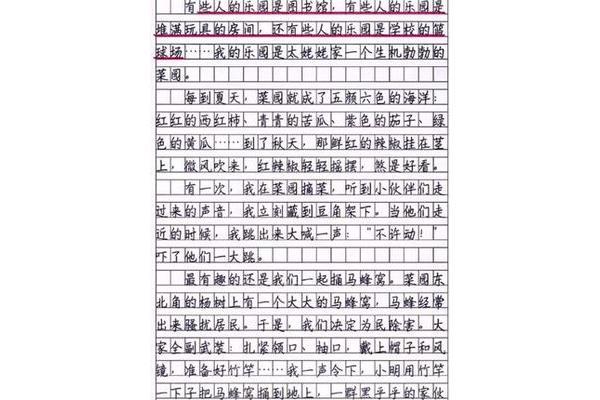 有些人的乐园是图书馆，有些人的乐园是
堆满玩具的房间，还有些人的乐园是学校的篮
球场……我的乐园是太姥姥家一个生机勃勃的
菜园。
每到夏天，菜园就成了五颜六色的海洋：
红红的西红柿、青青的苦瓜、紫色的茄子、绿
色的黄瓜……到了秋天，那鲜红的辣椒挂在茎
上，微风吹来，红辣椒轻轻摇摆，煞是好看。
有一次，我在菜园摘菜，听到小伙伴们走
过来的声音，我立刻藏到豆角架下。当他们走
近的时候，我跳出来大喊一声：“不许动！”
吓了他们一大跳。
最有趣的还是我们一起捅马蜂窝。菜园东
北角的杨树上有一个大大的马蜂窝，马蜂经常
出来骚扰居民。于是，我们决定为民除害。大
家全副武装：扎紧领口、袖口，戴上帽子和风
镜，准备好竹竿……我一声令下，小明用竹竿
一下子把马蜂窝捅到地上，一群黑乎乎的家伙